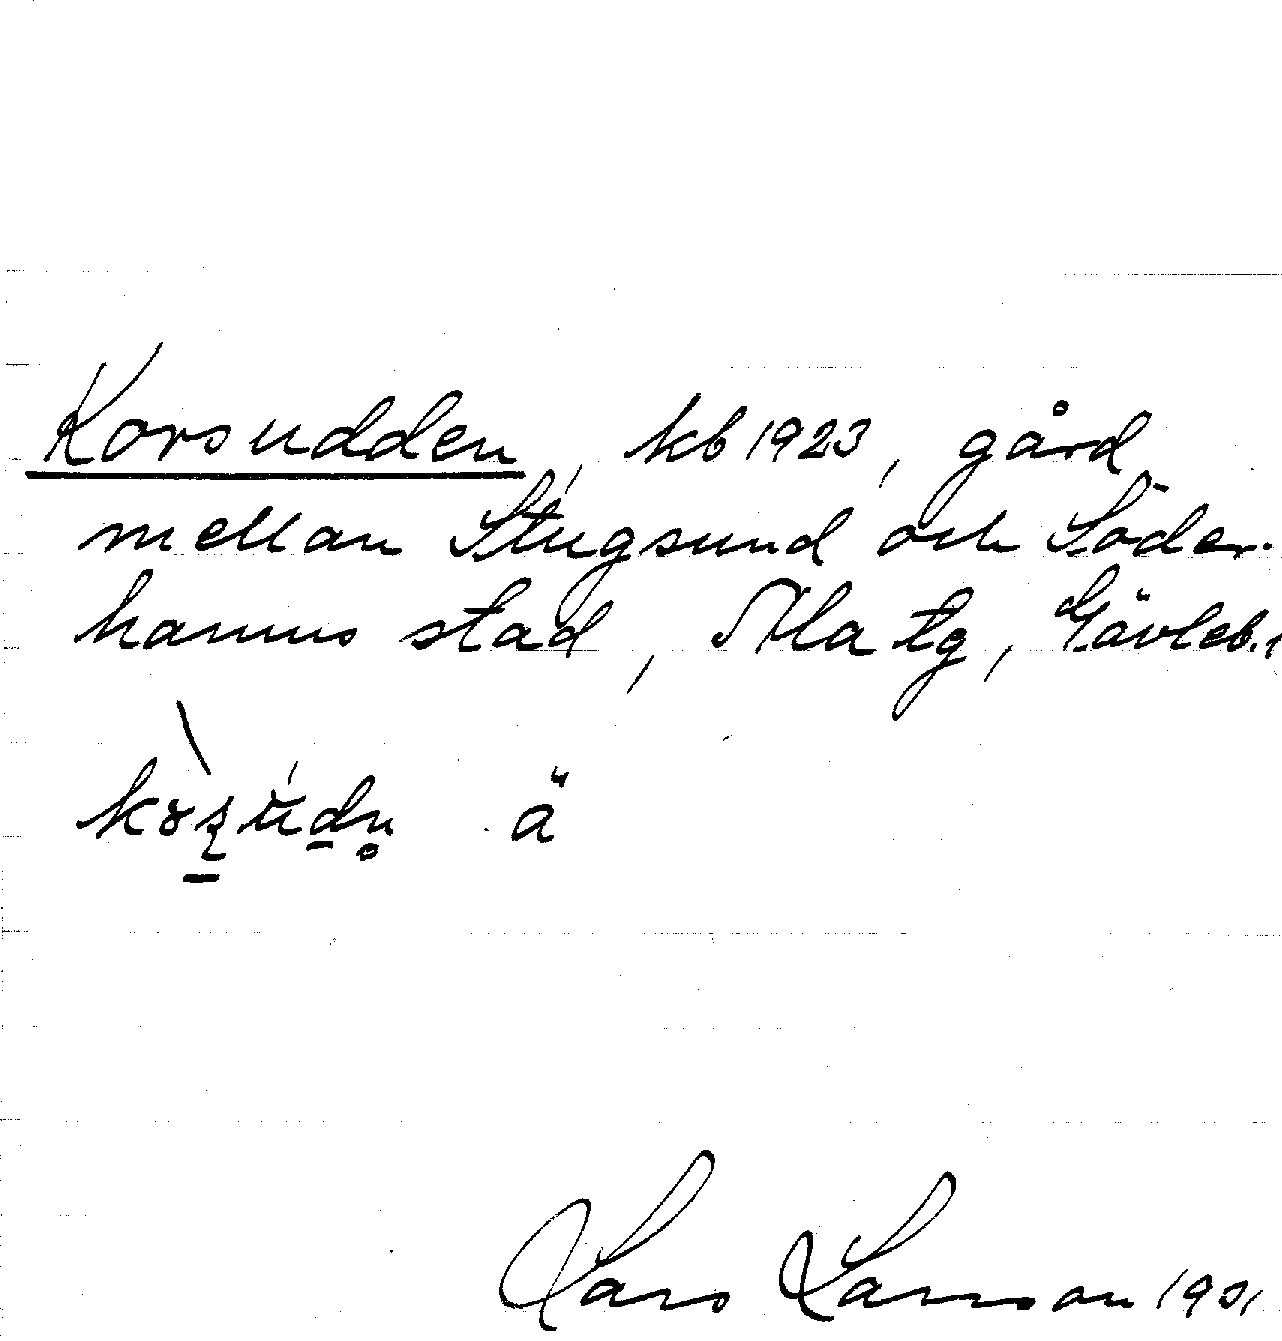 Korsudden, kb 1923, gård
mellan Stugsund och Söder-
hamns stad, Ala tg, Gävleb.
ä
Lars Larsson